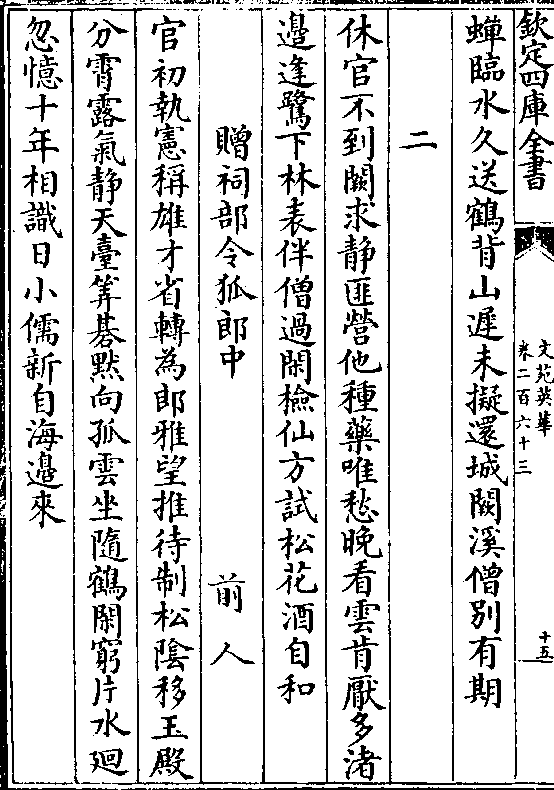 欽定四庫全書
文苑英華
卷二百六十三
十五
蟬臨水久送鶴背山遲未擬還城闕溪僧別有期
二
休官不到闕求静匪營他種藥唯愁晚看雲肯厭多渚
邉逢鷺下林表伴僧過閑檢仙方試松花酒自和
贈祠部令狐郎中　前人
官初執憲稱雄才省轉為郎雅望推待制松陰移玉殿
分霄露氣静天臺筭碁默向孤雲坐隨鶴閑窮片水廻
忽憶十年相識日小儒新自海邉來